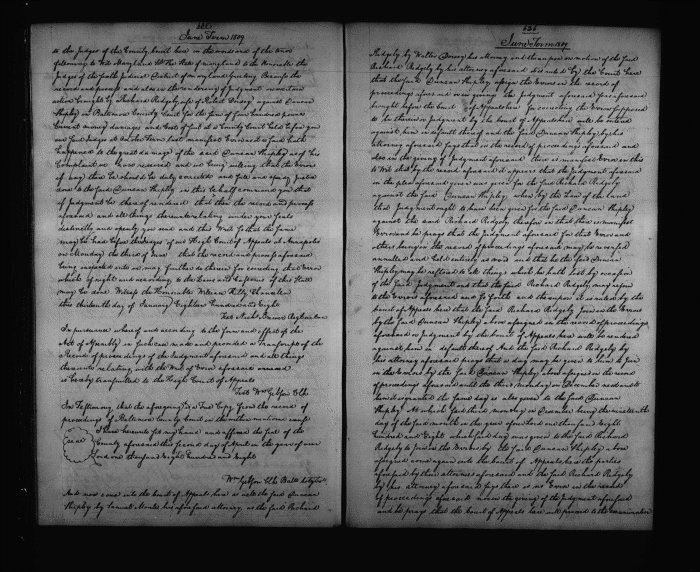 June Term 1809
to the Judges of the County Court here in the
following to Wit Maryland to Wit The State of Maryland to the Honorable the
Judges of the fourth Judicial District of Maryland Greeting Because the
record and process and also in the rendering of Judgment in a certain
action brought by Richard Ridgely use of Robert Dorsey against Duncan
Shipley in Baltimore County Court for the sum of four hundred pounds
Current money damages and Costs of suit at a County Court held before you
our said Judges at last manifest Error as is said hath
happened to the great damage of the said Duncan Shipley as of his
Complaint we have received and we being willing that the Error
if any there be should be duly corrected and full and speedy Justice
done to the said Duncan Shipley in this behalf command you that
if Judgment be thereof rendered that then the record and process
aforesaid and all things thereunto relating under your Seals
distinctly and openly you send and this Writ so that the same
may be had before the Judges of our High Court of Appeals at Annapolis
on Monday the third of June that the record and process aforesaid
being inspected we may further to therein for correcting that Error
which of right and according to the Laws and Customs of this State
may be done Witness the Honorable William Kilty Chancellor
this thirteenth day of January Eighteen hundred and Eight
Test
In pursuance whereof and according to the form and effect of the
Act of Assembly in such case made and provided a Transcript of the
Record of proceedings of the Judgment aforesaid and all things
thereunto relating with the Writ of Error aforesaid annexed
is hereby transmitted to the High Court of Appeals
Test Wm Gibson Clk
In Testimony that the aforegoing is a True Copy from the record of
proceedings of Baltimore County Court in the within mentioned cause
I have hereunto set my hand and affixed the Seal of the
County aforesaid this Second day of April in the year of our
Lord one thousand Eight hundred and Eight
Wm Gibson Clk
And now come into the Court of Appeals here as well the said Duncan
Shipley by Samuel his aforesaid attorney, as the said Richard
June Term 1809
Ridgely by Walter Dorsey his attorney and thereupon on motion of the said
Richard Ridgely by his attorney aforesaid it is ruled by the Court here
that the said Duncan Shipley assign the Errors in the record of
proceedings aforesaid or in giving the Judgment aforesaid
brought before the Court of Appeals here for correcting the Errors supposed
to be therein or Judgment by the Court of Appeals here will be entered
against him in default thereof and the said Duncan Shipley by his
attorney aforesaid says that in the record of proceedings aforesaid and
also in the giving of Judgment aforesaid there is manifest Error in this
to Wit that by the record aforesaid it appears that the Judgment aforesaid
in the plea aforesaid given was given for the said Richard Ridgely
against the said Duncan Shipley when by the Law of the land
that Judgment ought to have been given for the said Duncan Shipley
against the said Richard Ridgely therefore in that there is manifest
Error and he prays that the Judgment aforesaid for that Error and
others being in the record of proceedings aforesaid may be reversed
annulled and held entirely as void and that he the said Duncan
Shipley may be restored to all things which he hath lost by occasion
of the said Judgment and that the said Richard Ridgely may rejoin
to the Errors aforesaid and so forth and thereupon it is ruled by the
Court of Appeals here that the said Richard Ridgely Join in the Errors
by the said Duncan Shipley above assigned in the record of proceedings
aforesaid or Judgment by the Court of Appeals here will be rendered
against him in default thereof. And the said Richard Ridgely by
his attorney aforesaid prays that a day may be given to him to Join
in the Errors by the said Duncan Shipley above assigned in the record
of proceedings aforesaid until the third monday in December next and to
him it is granted the same day is also given to the said Duncan
Shipley At which said third monday in December being the nineteenth
day of the said month in the year of our Lord one thousand eight
hundred and Eight which said day was given to the said Richard
Ridgely to Join in the Errors by the said Duncan Shipley above
assigned come again into the Court of Appeals here the parties
aforesaid by their attornies aforesaid and the said Richard Ridgely
by his attorney aforesaid says there is no Error in the record
of proceedings aforesaid nor in the giving of the Judgment aforesaid
and he prays that the Court of Appeals here will proceed to the examination